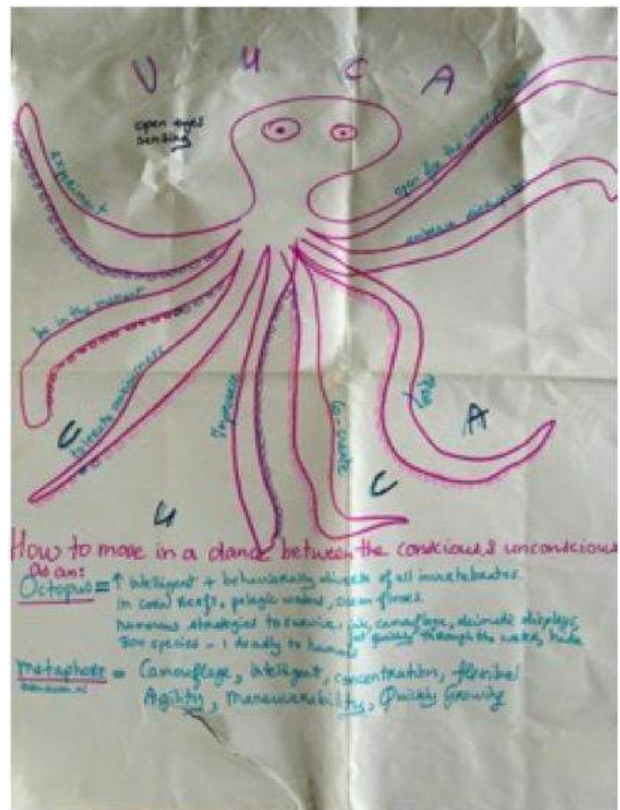 V U C A
open eyes
sensing
experiment
open for the unexpected
embrace disruption
be in the moment
tolerate
Improvise
Co-create
Play
U
A
C
U
How to move in a dance between the conscious & unconscious
as an:
Octopus = ↑ intelligent + behaviorally diverse of all invertebrates
in coral reefs, pelagic waters, ocean floors
numerous strategies to survive, ink, camouflage, deimatic displays,
300 species - 1 deadly to humans jet quickly through the water, hide
metaphors = Camouflage, intelligent, concentration, flexibel
Agility, Maneuverability, Quickly Growing